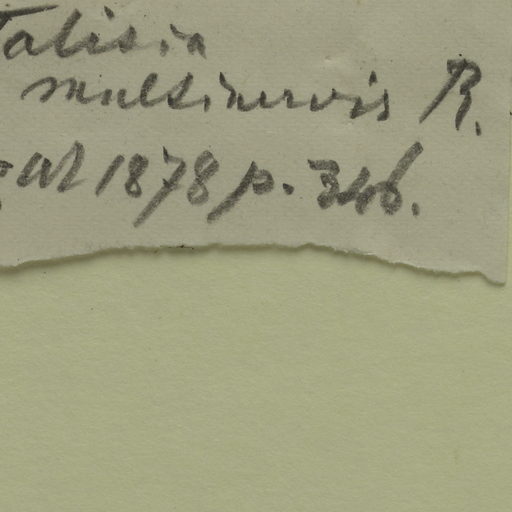 Talisia
multinervis R.
1878 p. 346.